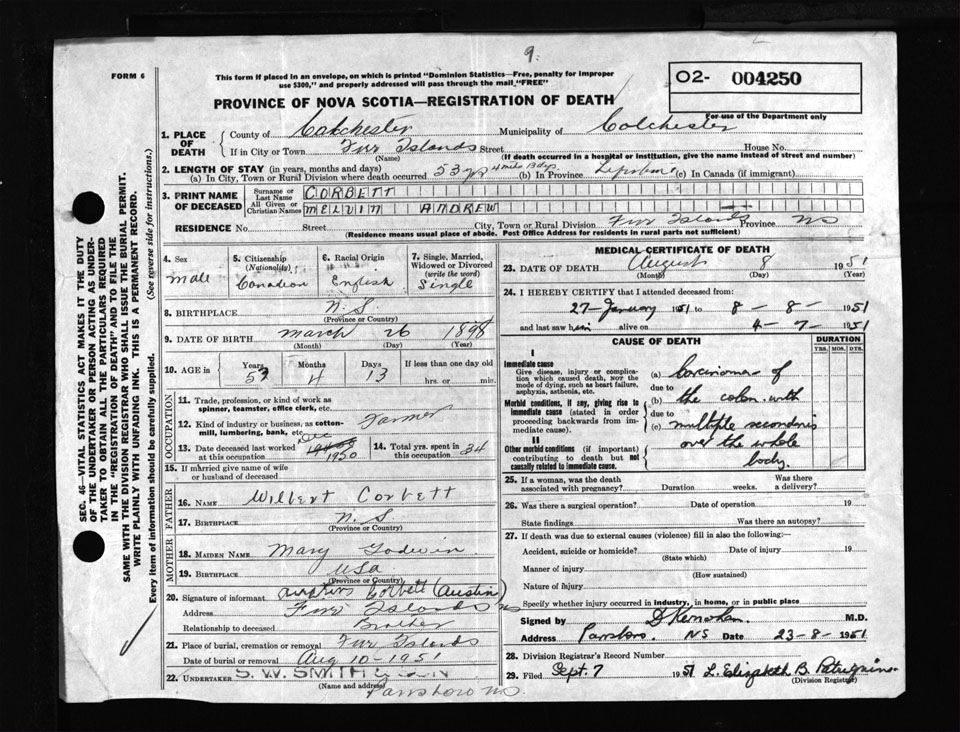 9.
FORM 6
This form if placed in an envelope, on which is printed "Dominion Statistics—Free, penalty for improper
use $300," and properly addressed will pass through the mail "FREE"
O2- 004250
For use of the Department only
PROVINCE OF NOVA SCOTIA—REGISTRATION OF DEATH
1. PLACE OF DEATH County of Colchester Municipality of Colchester
If in City or Town Five Islands Street House No.
(Name) (If death occurred in a hospital or institution, give the name instead of street and number)
2. LENGTH OF STAY (in years, months and days)
(a) In City, Town or Rural Division where death occurred 53 yrs 4 mths 13 dys (b) In Province (c) In Canada (if immigrant)
3. PRINT NAME OF DECEASED Surname or Last Name CORBETT
All Given or Christian Names MELVIN ANDREW
RESIDENCE No. Street City, Town or Rural Division Five Islands Province NS
(Residence means usual place of abode. Post Office Address for residents in rural parts not sufficient)
4. Sex 5. Citizenship (Nationality) 6. Racial Origin 7. Single, Married, Widowed or Divorced (write the word)
Male Canadian English Single
8. BIRTHPLACE N.S
(Province or Country)
9. DATE OF BIRTH March 26 1898
(Month) (Day) (Year)
10. AGE in Years Months Days If less than one day old
53 4 13 hrs. or min.
OCCUPATION
11. Trade, profession, or kind of work as
spinner, teamster, office clerk, etc. Farmer
12. Kind of industry or business, as cotton-
mill, lumbering, bank, etc.
13. Date deceased last worked at this occupation Dec 1950 14. Total yrs. spent in this occupation 34
15. If married give name of wife
or husband of deceased
FATHER
16. NAME Wilbert Corbett
17. BIRTHPLACE N.S
(Province or Country)
MOTHER
18. MAIDEN NAME Mary Godwin
19. BIRTHPLACE USA
(Province or Country)
20. Signature of informant Corbett (Austin)
Address Five Islands NS
Relationship to deceased Brother
21. Place of burial, cremation or removal Five Islands
Date of burial or removal Aug 10-1951
22. UNDERTAKER S. W. SMITH & SON
(Name and address) Parrsboro NS
MEDICAL CERTIFICATE OF DEATH
23. DATE OF DEATH August 8 1951
(Month) (Day) (Year)
24. I HEREBY CERTIFY that I attended deceased from:
27-January 1951 to 8-8-1951
and last saw him alive on 4-7-1951
CAUSE OF DEATH DURATION
YRS. MOS. DYS.
I
Immediate cause
Give disease, injury or complica-
tion which caused death, NOT the
mode of dying, such as heart failure,
asphyxia, asthenia, etc.
(a) Carcinoma of
due to
Morbid conditions, if any, giving rise to
immediate cause (stated in order
proceeding backwards from im-
mediate cause).
(b) the colon with
due to
(c) multiple secondaries
II
Other morbid conditions (if important)
contributing to death but not
causally related to immediate cause.
over the whole
body.
25. If a woman, was the death
associated with pregnancy? Duration weeks. Was there a delivery?
26. Was there a surgical operation? Date of operation 19
State findings Was there an autopsy?
27. If death was due to external causes (violence) fill in also the following:—
Accident, suicide or homicide? Date of injury 19
(State which)
Manner of injury
(How sustained)
Nature of Injury
Specify whether injury occurred in industry, in home, or in public place
Signed by M.D.
Address Parrsboro NS Date 23-8-1951
28. Division Registrar's Record Number
29. Filed Sept. 7 1951 L. Elizabeth B.
(Division Registrar)
SEC. 46—VITAL STATISTICS ACT MAKES IT THE DUTY
OF THE UNDERTAKER OR PERSON ACTING AS UNDER-
TAKER TO OBTAIN ALL THE PARTICULARS REQUIRED
IN THE "REGISTRATION OF DEATH" AND TO FILE THE
SAME WITH THE DIVISION REGISTRAR WHO SHALL ISSUE THE BURIAL PERMIT.
WRITE PLAINLY WITH UNFADING INK. THIS IS A PERMANENT RECORD.
Every item of information should be carefully supplied. (See reverse side for instructions.)